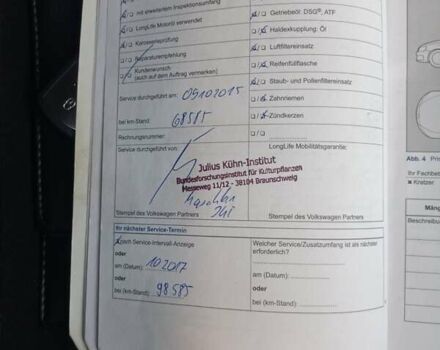 mit erweitertem Inspektionsumfang
LongLife Motoröl verwendet
Karosserieprüfung
Reparaturempfehlung
Kundenwunsch:
(auch auf dem Auftrag vermerken)
Service durchgeführt am: 09102015
bei km-Stand: 68585
Rechnungsnummer:
Service durchgeführt von:
Getriebeöl: DSG®, ATF
Haldexkupplung: Öl
Luftfiltereinsatz
Reifenfüllflasche
Staub- und Pollenfiltereinsatz
Zahnriemen
Zündkerzen
LongLife Mobilitätsgarantie:
Julius Kühn-Institut
Bundesforschungsinstitut für Kulturpflanzen
Messeweg 11/12 - 38104 Braunschweig
Stempel des Volkswagen Partners
Stempel des Volkswagen Partners
Ihr nächster Service-Termin
zum Service-Intervall-Anzeige
oder
am (Datum): 10 2017
oder
bei (km-Stand): 98 585
Welcher Service/Zusatzumfang ist als nächster
erforderlich?
am (Datum):
oder
bei (km-Stand):
Abb. 4
Ihr Fachbet
Kratzer
Mäng
Beschreibu